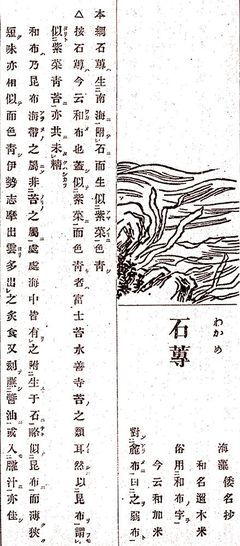 わかめ
石蓴
海藻 倭名抄
和名邇木米
俗用和布字
今云和加米
對麁布曰之弱布
本綱石蓴生南海附石而生似紫菜色青
△按石蓴今云和布也蓋似紫菜而色青者富士苔水善寺苔之類耳然以昆布謂
似紫菜青苔亦共未精
和布乃昆布海帶之屬非苔之屬處處海中皆有之附生于石略似昆布而薄狹
短味亦相似而色青伊勢志摩出雲多出之炙食又刻蘸醬油或入臛汁亦佳